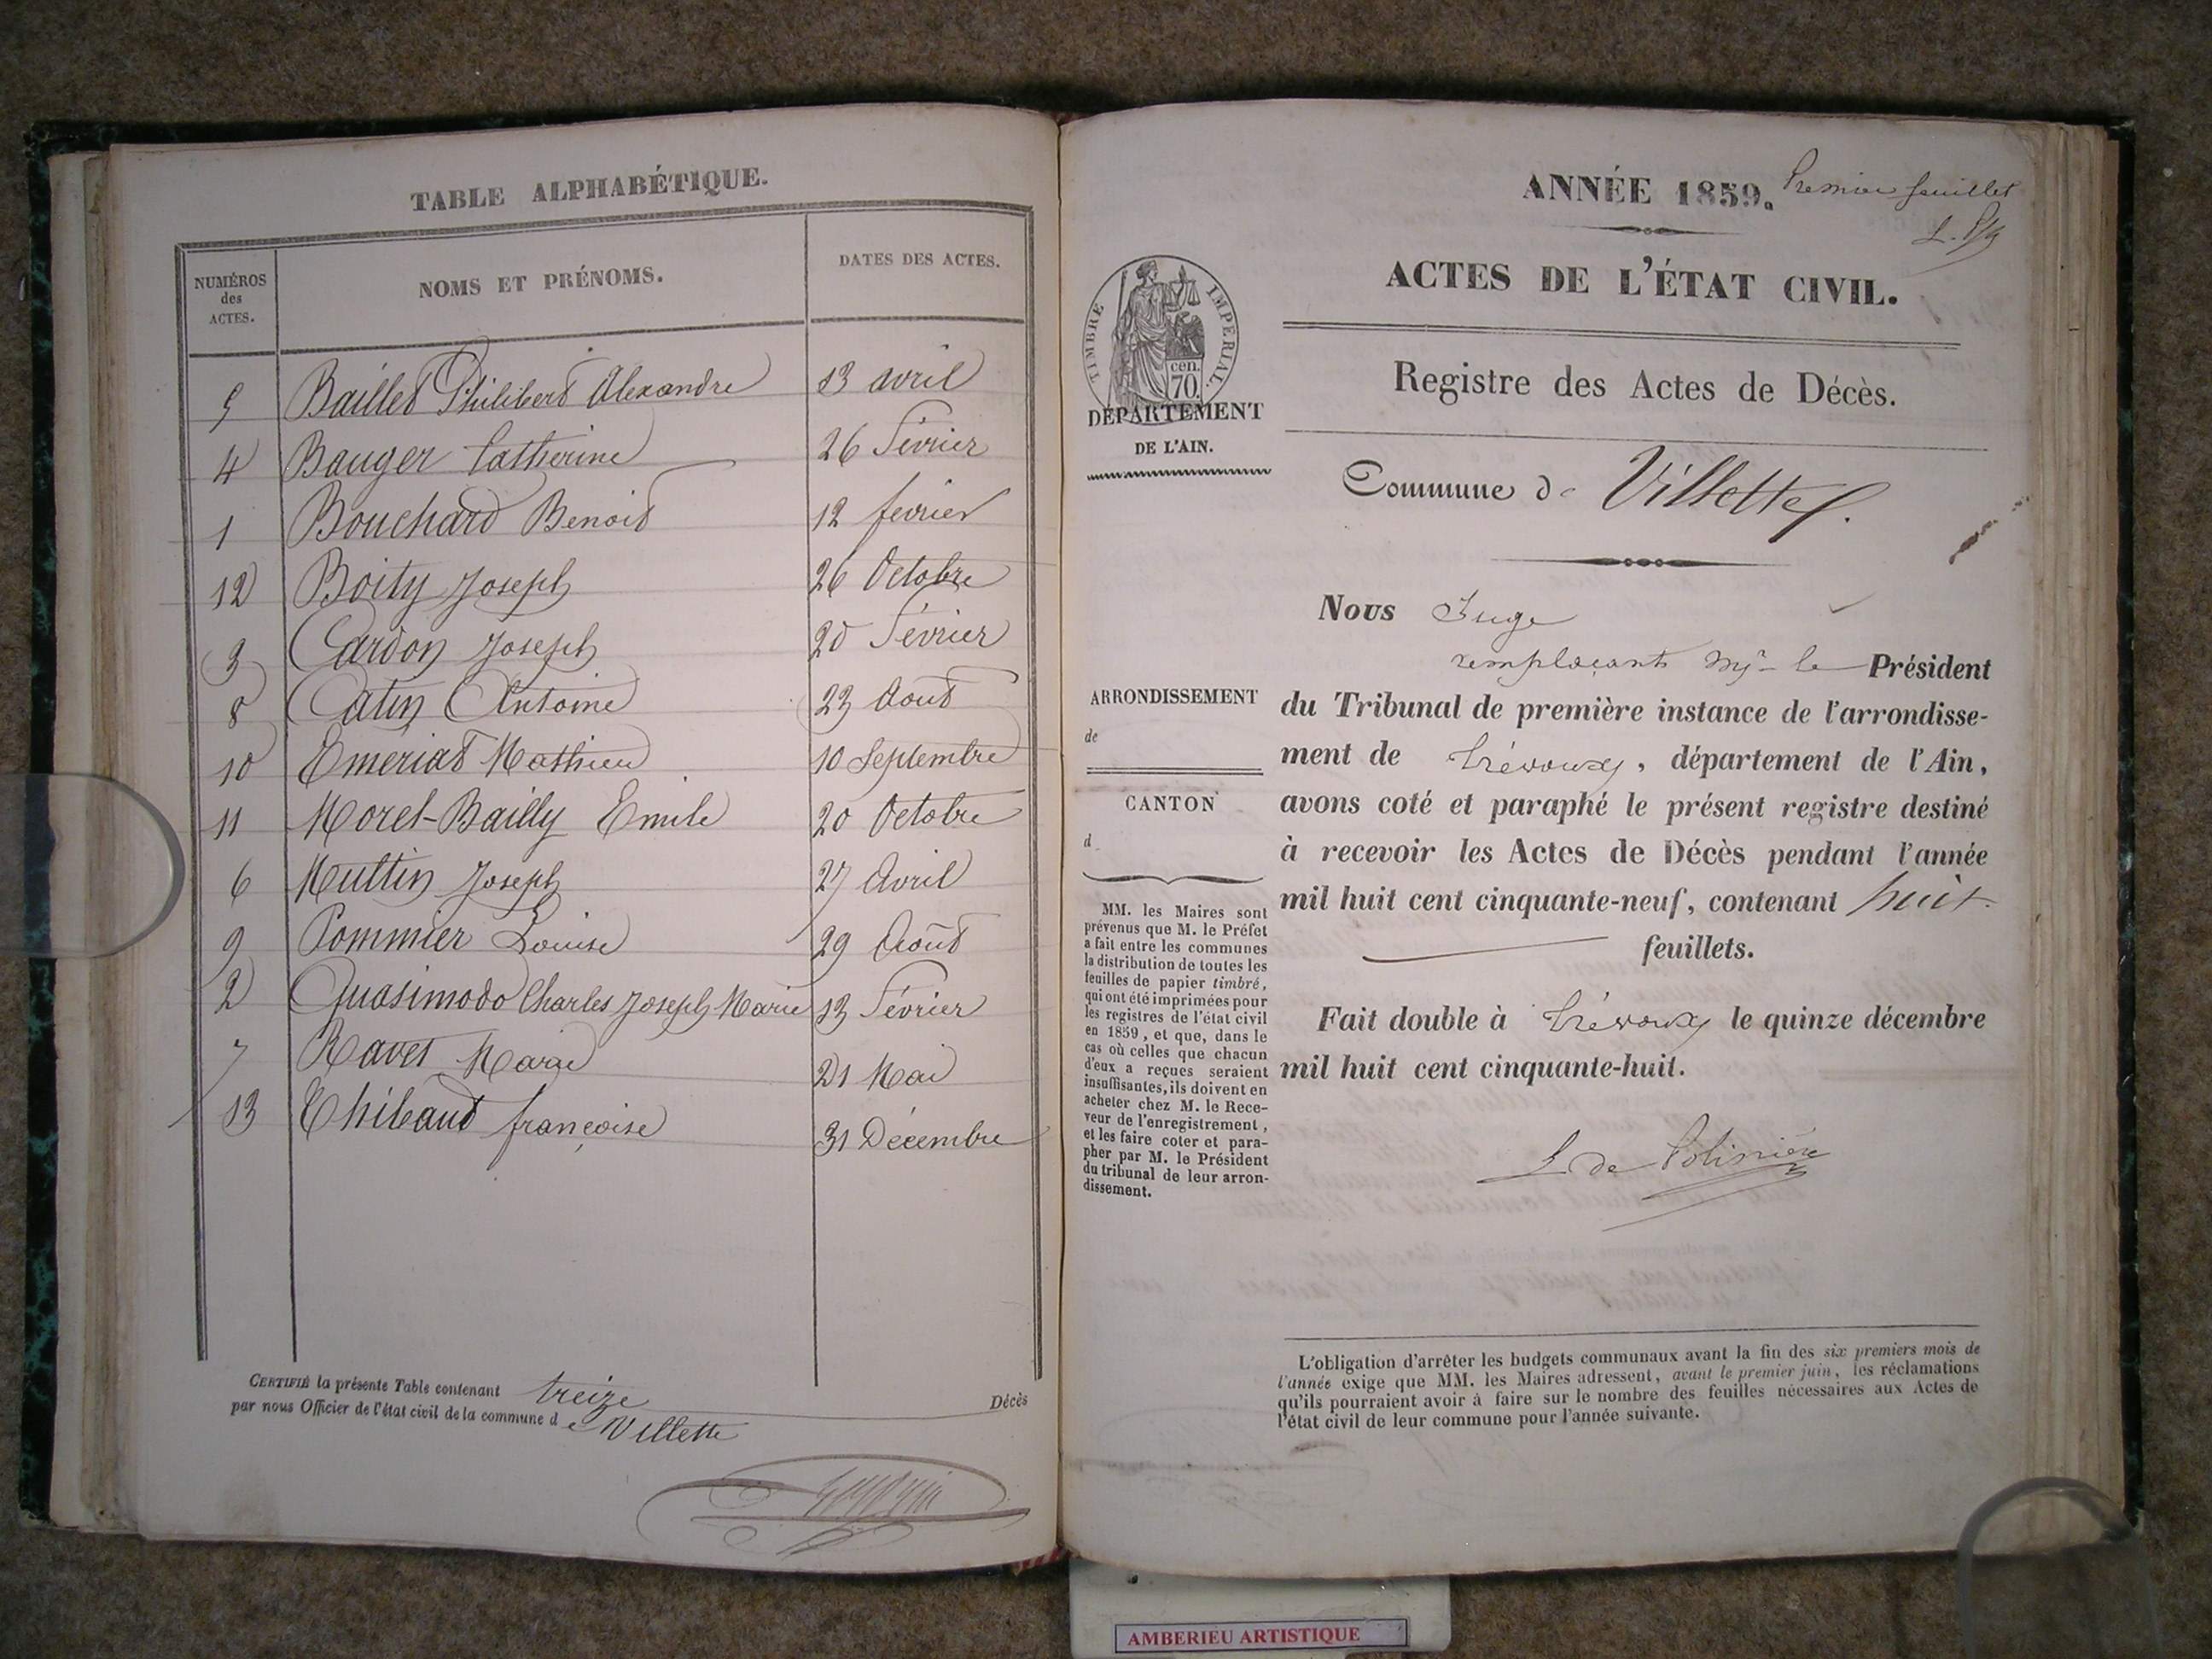 TABLE ALPHABÉTIQUE.
NUMÉROS des ACTES. NOMS ET PRÉNOMS. DATES DES ACTES.
5 Baillet Philibert Alexandre 13 avril
4 Bauger Catherine 26 Février
1 Bouchard Benoit 12 fevrier
12 Boity Joseph 26 Octobre
3 Cardon Joseph 20 Février
8 Catin Antoine 23 Aout
10 Emeriat Mathieu 10 Septembre
11 Morel-Bailly Emile 20 Octobre
6 Multin Joseph 27 Avril
9 Pommier Louise 29 Août
2 Quasimodo Charles Joseph-Marie 13 Février
7 Ravet Marie 21 Mai
13 Thibaud françoise 31 Décembre
CERTIFIÉ la présente Table contenant treize Décès
par nous Officier de l'état civil de la commune de Villette
ANNÉE 1859. Premier feuillet
ACTES DE L'ÉTAT CIVIL.
TIMBRE IMPERIAL.
cen.
70.
Registre des Actes de Décès.
DÉPARTEMENT
DE L'AIN.
Commune de Villette.
Nous Juge
remplaçant Mr le Président
du Tribunal de première instance de l'arrondisse-
ment de Trévoux, département de l'Ain,
avons coté et paraphé le présent registre destiné
à recevoir les Actes de Décès pendant l'année
mil huit cent cinquante-neuf, contenant huit
feuillets.
Fait double à Trévoux le quinze décembre
mil huit cent cinquante-huit.
L. de Polinière
ARRONDISSEMENT
de
CANTON
d
MM. les Maires sont
prévenus que M. le Préfet
a fait entre les communes
la distribution de toutes les
feuilles de papier timbré,
qui ont été imprimées pour
les registres de l'état civil
en 1859, et que, dans le
cas où celles que chacun
d'eux a reçues seraient
insuffisantes, ils doivent en
acheter chez M. le Rece-
veur de l'enregistrement,
et les faire coter et para-
pher par M. le Président
du tribunal de leur arron-
dissement.
L'obligation d'arrêter les budgets communaux avant la fin des six premiers mois de
l'année exige que MM. les Maires adressent, avant le premier juin, les réclamations
qu'ils pourraient avoir à faire sur le nombre des feuilles nécessaires aux Actes de
l'état civil de leur commune pour l'année suivante.
AMBERIEU ARTISTIQUE